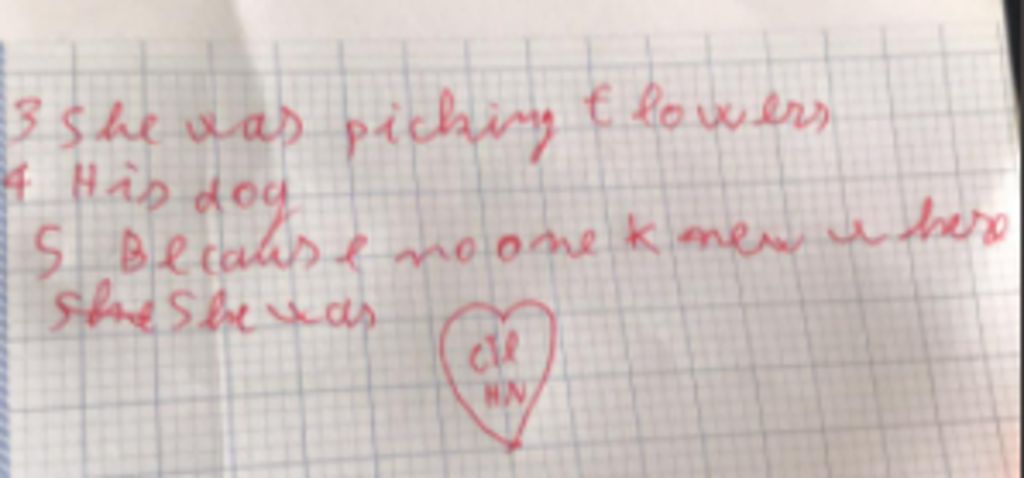 3 She was picking flowers
4 His dog
5 Because no one knew where
She She was
HN